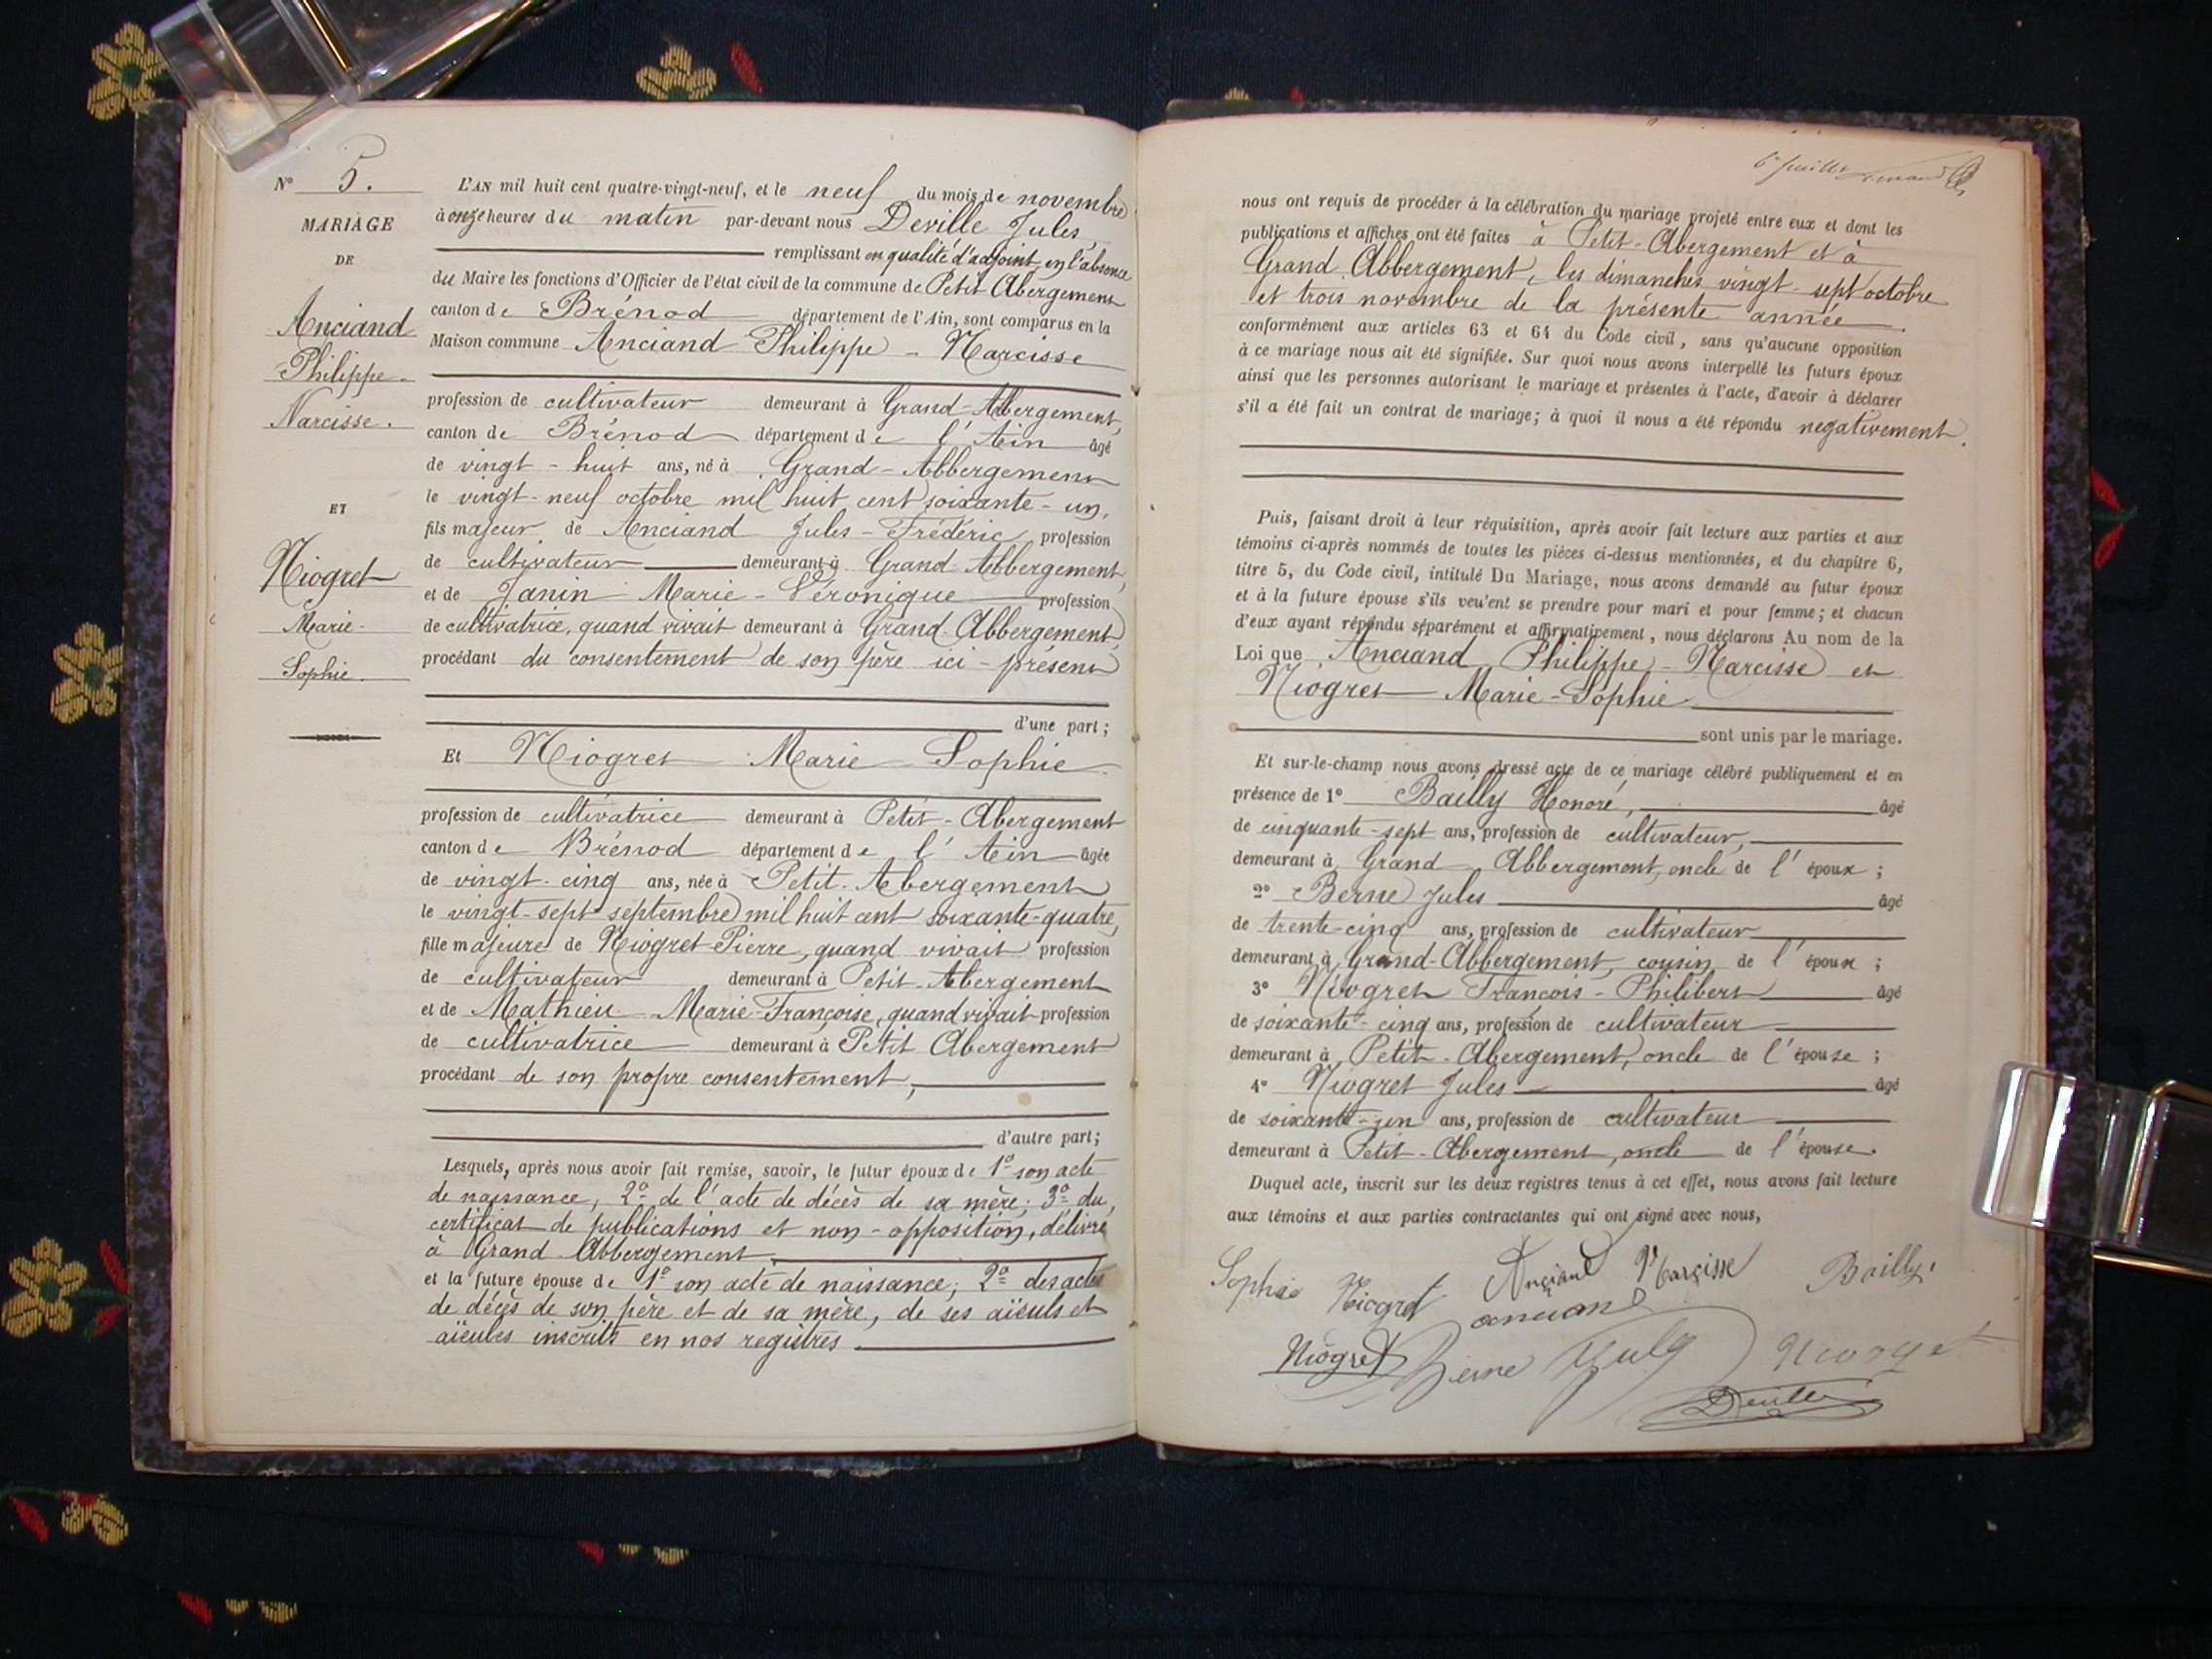 N° 5.
MARIAGE
DE
Anciand
Philippe-
Narcisse.
ET
Niogret
Marie-
Sophie.
L'AN mil huit cent quatre-vingt-neuf, et le neuf du mois de novembre
à onze heures du matin par-devant nous Deville Jules,
remplissant en qualité d'adjoint en l'absence
du Maire les fonctions d'Officier de l'état civil de la commune de Petit Abergement
canton de Brénod département de l'Ain, sont comparus en la
Maison commune Anciand Philippe - Narcisse
profession de cultivateur demeurant à Grand-Abergement,
canton de Brénod département de l'Ain âgé
de vingt-huit ans, né à Grand-Abbergement
le vingt-neuf octobre mil huit cent soixante-un,
fils majeur de Anciand Jules-Frédéric profession
de cultivateur demeurant à Grand Abbergement,
et de Janin Marie-Véronique profession
de cultivatrice, quand vivait demeurant à Grand-Abbergement,
procédant du consentement de son père ici-présent
d'une part;
Et Niogret Marie Sophie
profession de cultivatrice demeurant à Petit-Abergement
canton de Brénod département de l'Ain âgée
de vingt-cinq ans, née à Petit-Abergement
le vingt-sept septembre mil huit cent soixante-quatre,
fille majeure de Niogret Pierre, quand vivait profession
de cultivateur demeurant à Petit-Abergement
et de Mathieu Marie-Françoise, quand vivait profession
de cultivatrice demeurant à Petit Abergement
procédant de son propre consentement,
d'autre part;
Lesquels, après nous avoir fait remise, savoir, le futur époux de 1° son acte
de naissance, 2° de l'acte de décès de sa mère; 3° du
certificat de publications et non-opposition, délivré
à Grand-Abbergement.
et la future épouse de 1° son acte de naissance; 2° des actes
de décès de son père et de sa mère, de ses aïeuls et
aïeules inscrits en nos registres.
6e feuillet
nous ont requis de procéder à la célébration du mariage projeté entre eux et dont les
publications et affiches ont été faites à Petit-Abergement et à
Grand Abbergement, les dimanches vingt-sept octobre
et trois novembre de la présente année.
conformément aux articles 63 et 64 du Code civil, sans qu'aucune opposition
à ce mariage nous ait été signifiée. Sur quoi nous avons interpellé les futurs époux
ainsi que les personnes autorisant le mariage et présentes à l'acte, d'avoir à déclarer
s'il a été fait un contrat de mariage; à quoi il nous a été répondu négativement.
Puis, faisant droit à leur réquisition, après avoir fait lecture aux parties et aux
témoins ci-après nommés de toutes les pièces ci-dessus mentionnées, et du chapitre 6,
titre 5, du Code civil, intitulé Du Mariage, nous avons demandé au futur époux
et à la future épouse s'ils veu'ent se prendre pour mari et pour femme; et chacun
d'eux ayant répondu séparément et affirmativement, nous déclarons Au nom de la
Loi que Anciand Philippe-Narcisse et
Niogret Marie-Sophie
sont unis par le mariage.
Et sur-le-champ nous avons dressé acte de ce mariage célébré publiquement et en
présence de 1° Bailly Honoré, âgé
de cinquante-sept ans, profession de cultivateur,
demeurant à Grand Abbergement, oncle de l'époux;
2° Berne Jules âgé
de trente-cinq ans, profession de cultivateur
demeurant à Grand-Abbergement, cousin de l'époux;
3° Niogret François-Philibert âgé
de soixante-cinq ans, profession de cultivateur
demeurant à Petit-Abergement, oncle de l'épouse;
4° Niogret Jules âgé
de soixante-un ans, profession de cultivateur
demeurant à Petit-Abergement, oncle de l'épouse.
Duquel acte, inscrit sur les deux registres tenus à cet effet, nous avons fait lecture
aux témoins et aux parties contractantes qui ont signé avec nous,
Sophie Niogret Anciand Narcisse Bailly
anciand
Niogret Berne Jules Niogret
Deville